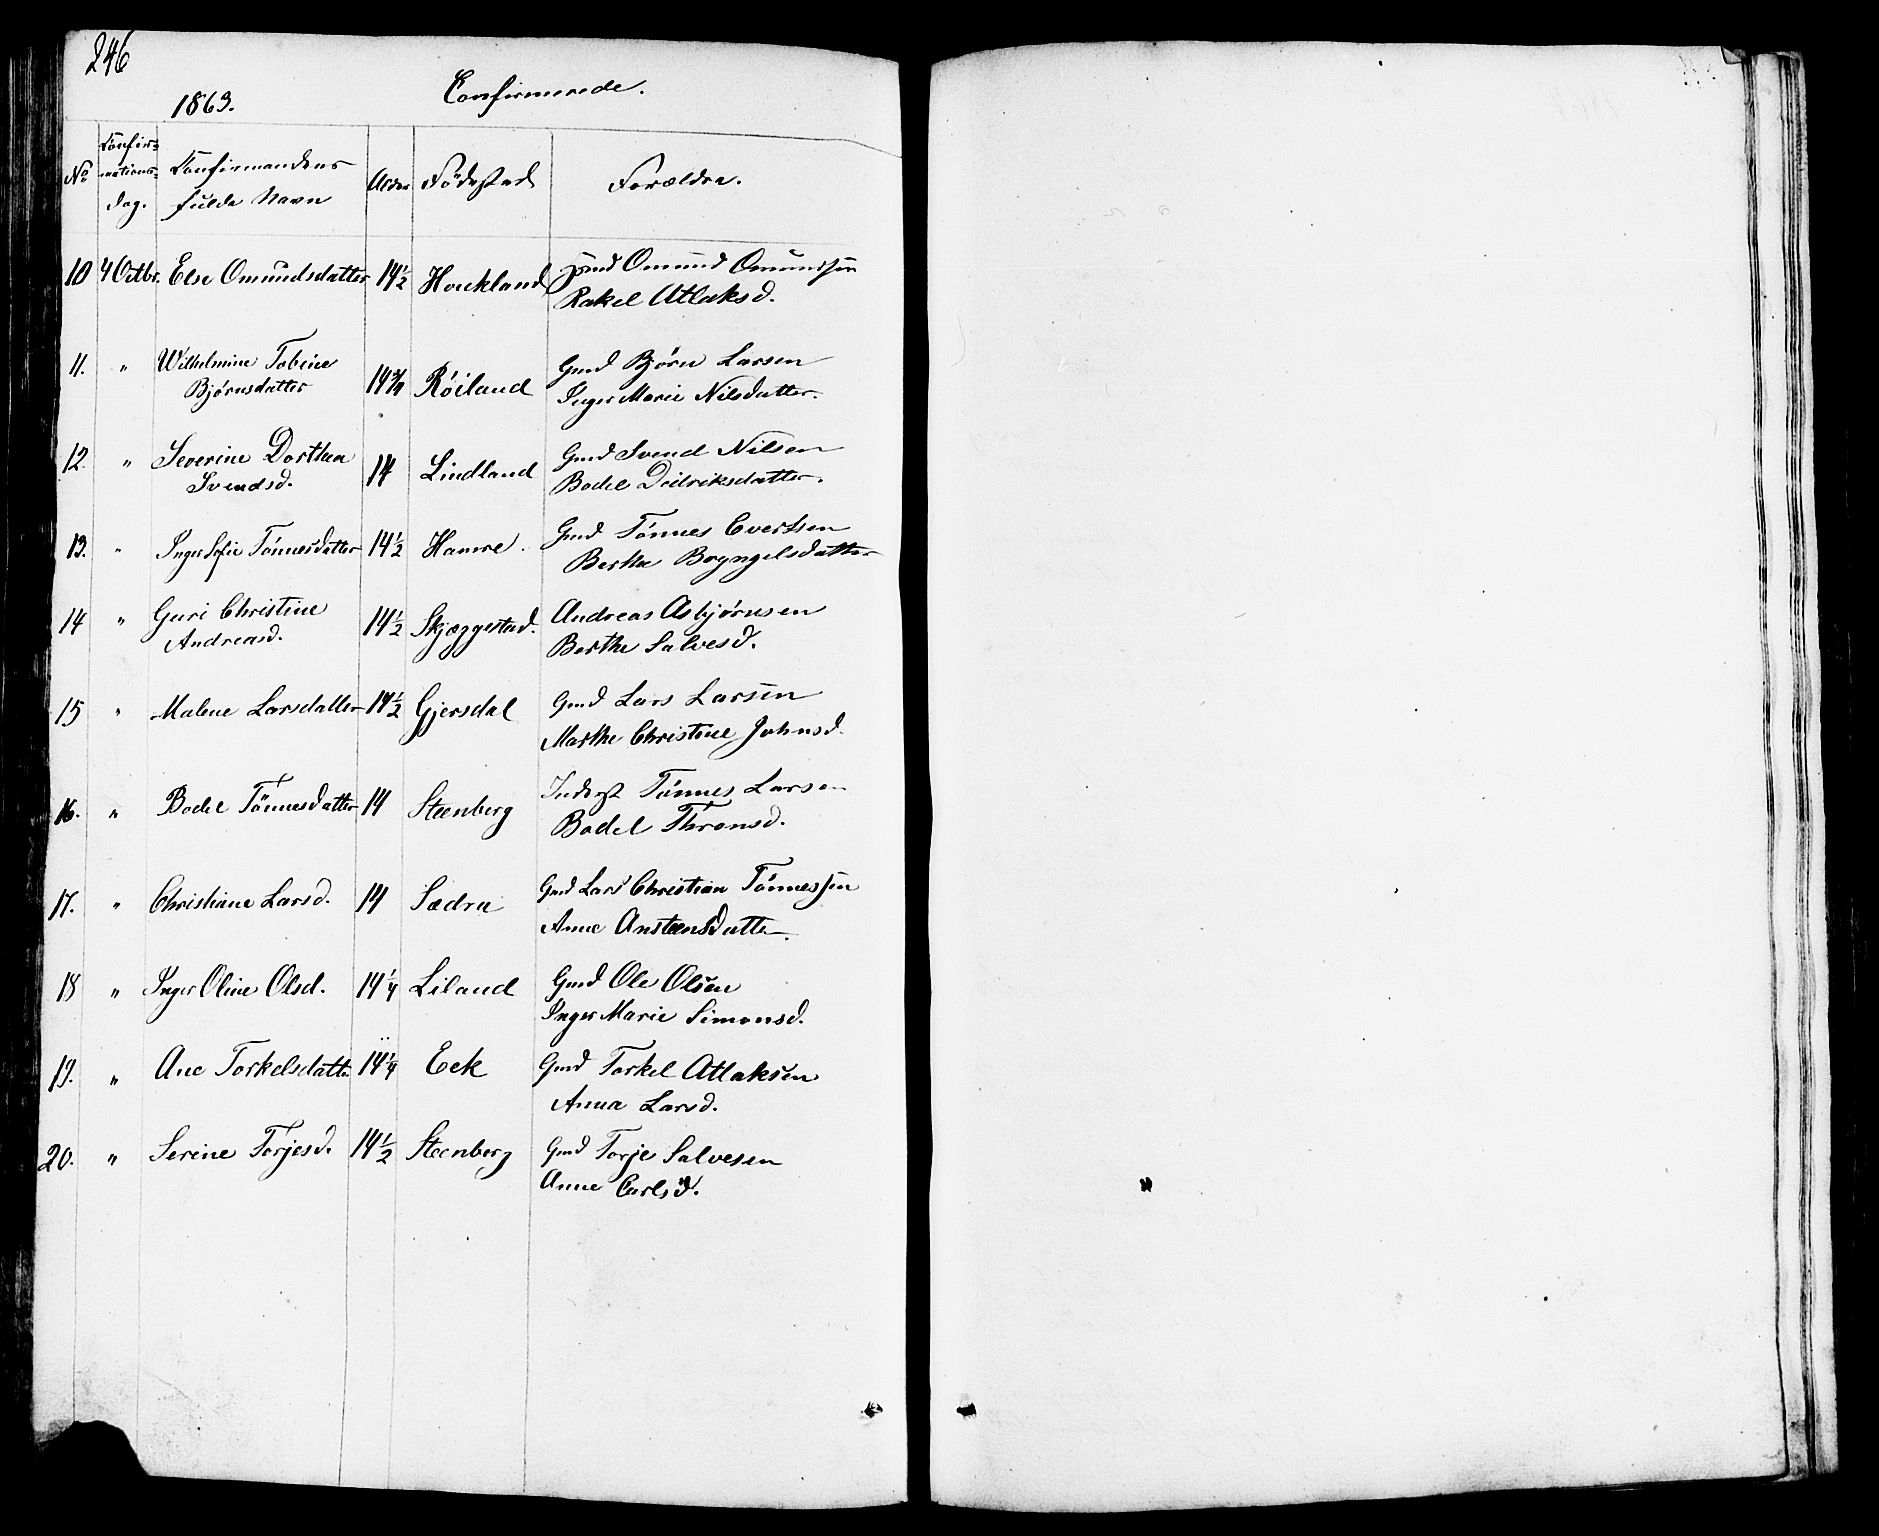 246
1863. Confirmerede.
No Confirmations-dag. Konfirmandens fulde Navn Alder Födested Forældre.
10 4 Octbr. Else Omundsdatter 14½ Houkland Gmd Omund Omundsen
Rakel Atlaksd.
11. " Wilhelmine Tobine Bjørnsdatter 14¾ Röiland Gmd Bjørn Larsen
Inger Marie Nilsdatter.
12. " Severine Dorthea Svendsd. 14 Lindland Gmd Svend Nilsen
Bodel Didriksdatter.
13. " Inger Sofie Tönnesdatter 14½ Hamre. Gmd Tönnes Evertsen
Berthe Bryngelsdatter
14 " Guri Christine Andreasd. 14½ Skjæggestad. Andreas Asbjørnsen
Berthe Salvesd.
15 " Malene Larsdatter 14½ Gjersdal Gmd Lars Larsen
Marthe Christine Johnsd.
16. " Bodel Tönnesdatter 14 Steenberg Inderst Tönnes Larsen
Bodel Thronsd.
17. " Christiane Larsd. 14 Sædra Gmd Lars Christian Tönnessen
Anne Anstensdatter.
18 " Inger Oline Olsd. 14¼ Liland Gmd Ole Olsen
Inger Marie Simonsd.
19. " Ane Torkelsdatter 14¼ Eek Gmd Torkel Atlaksen
Anna Larsd.
20. " Serine Torjesd. 14½ Steenberg Gmd Torje Salvesen
Anne Carlsd.